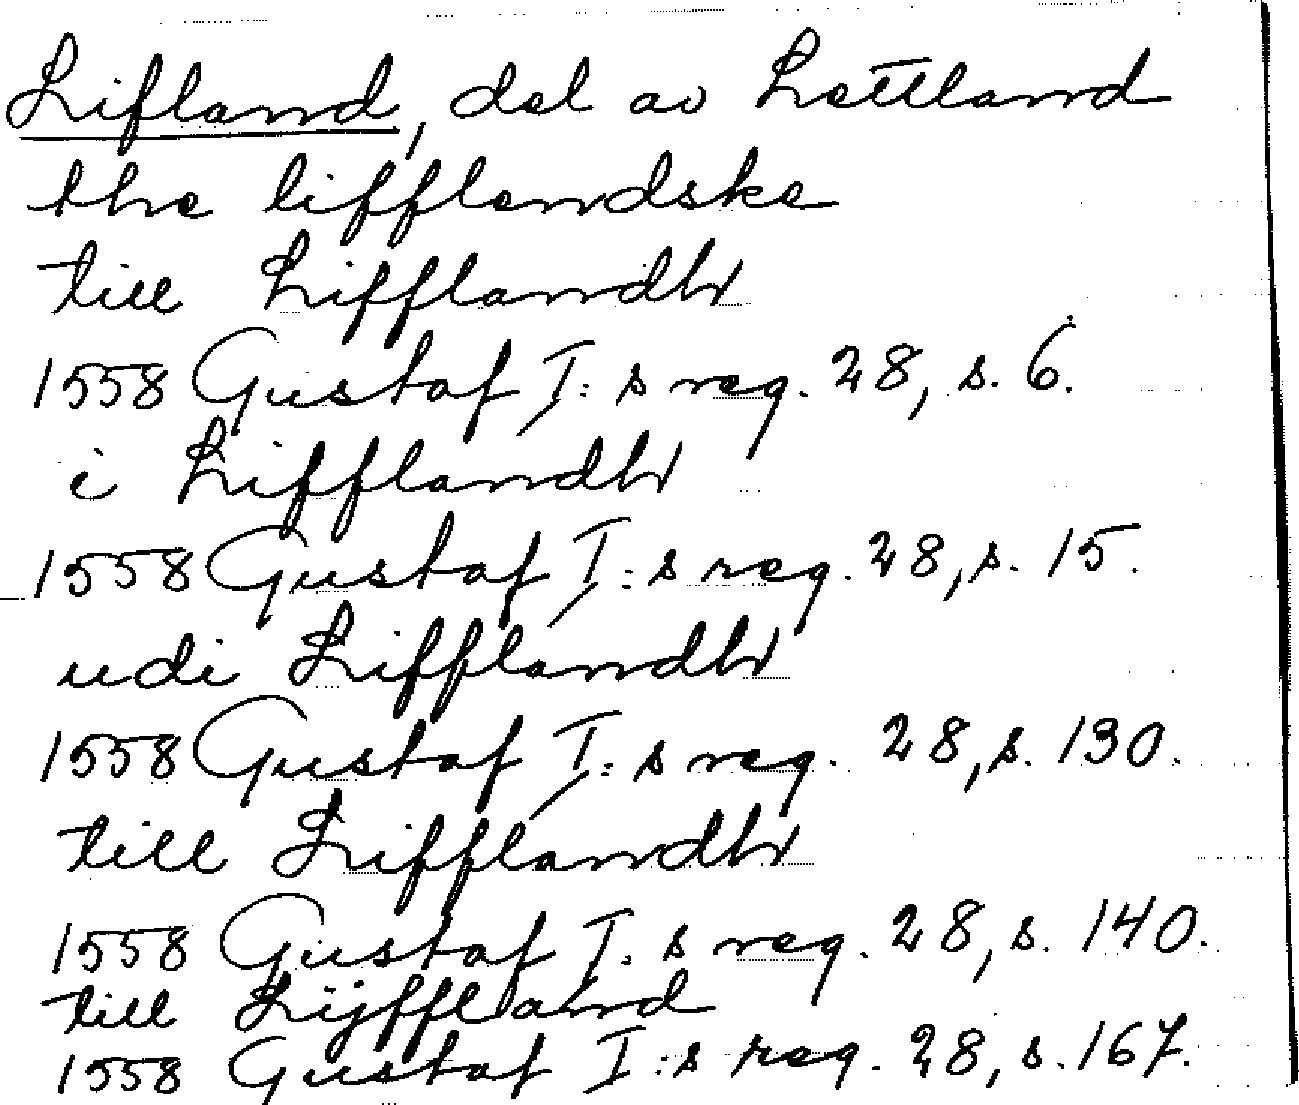 Lifland, del av Lettland
the lifflendske
till Lifflandh
1558 Gustaf I:s reg. 28, s. 6.
i Lifflandh
1558 Gustaf I:s reg. 28, s. 15.
udi Lifflandh
1558 Gustaf I:s reg. 28, s. 130.
till Lifflandh
1558 Gustaf I:s reg. 28, s. 140.
till Lijffland
1558 Gustaf I:s reg. 28, s. 167.